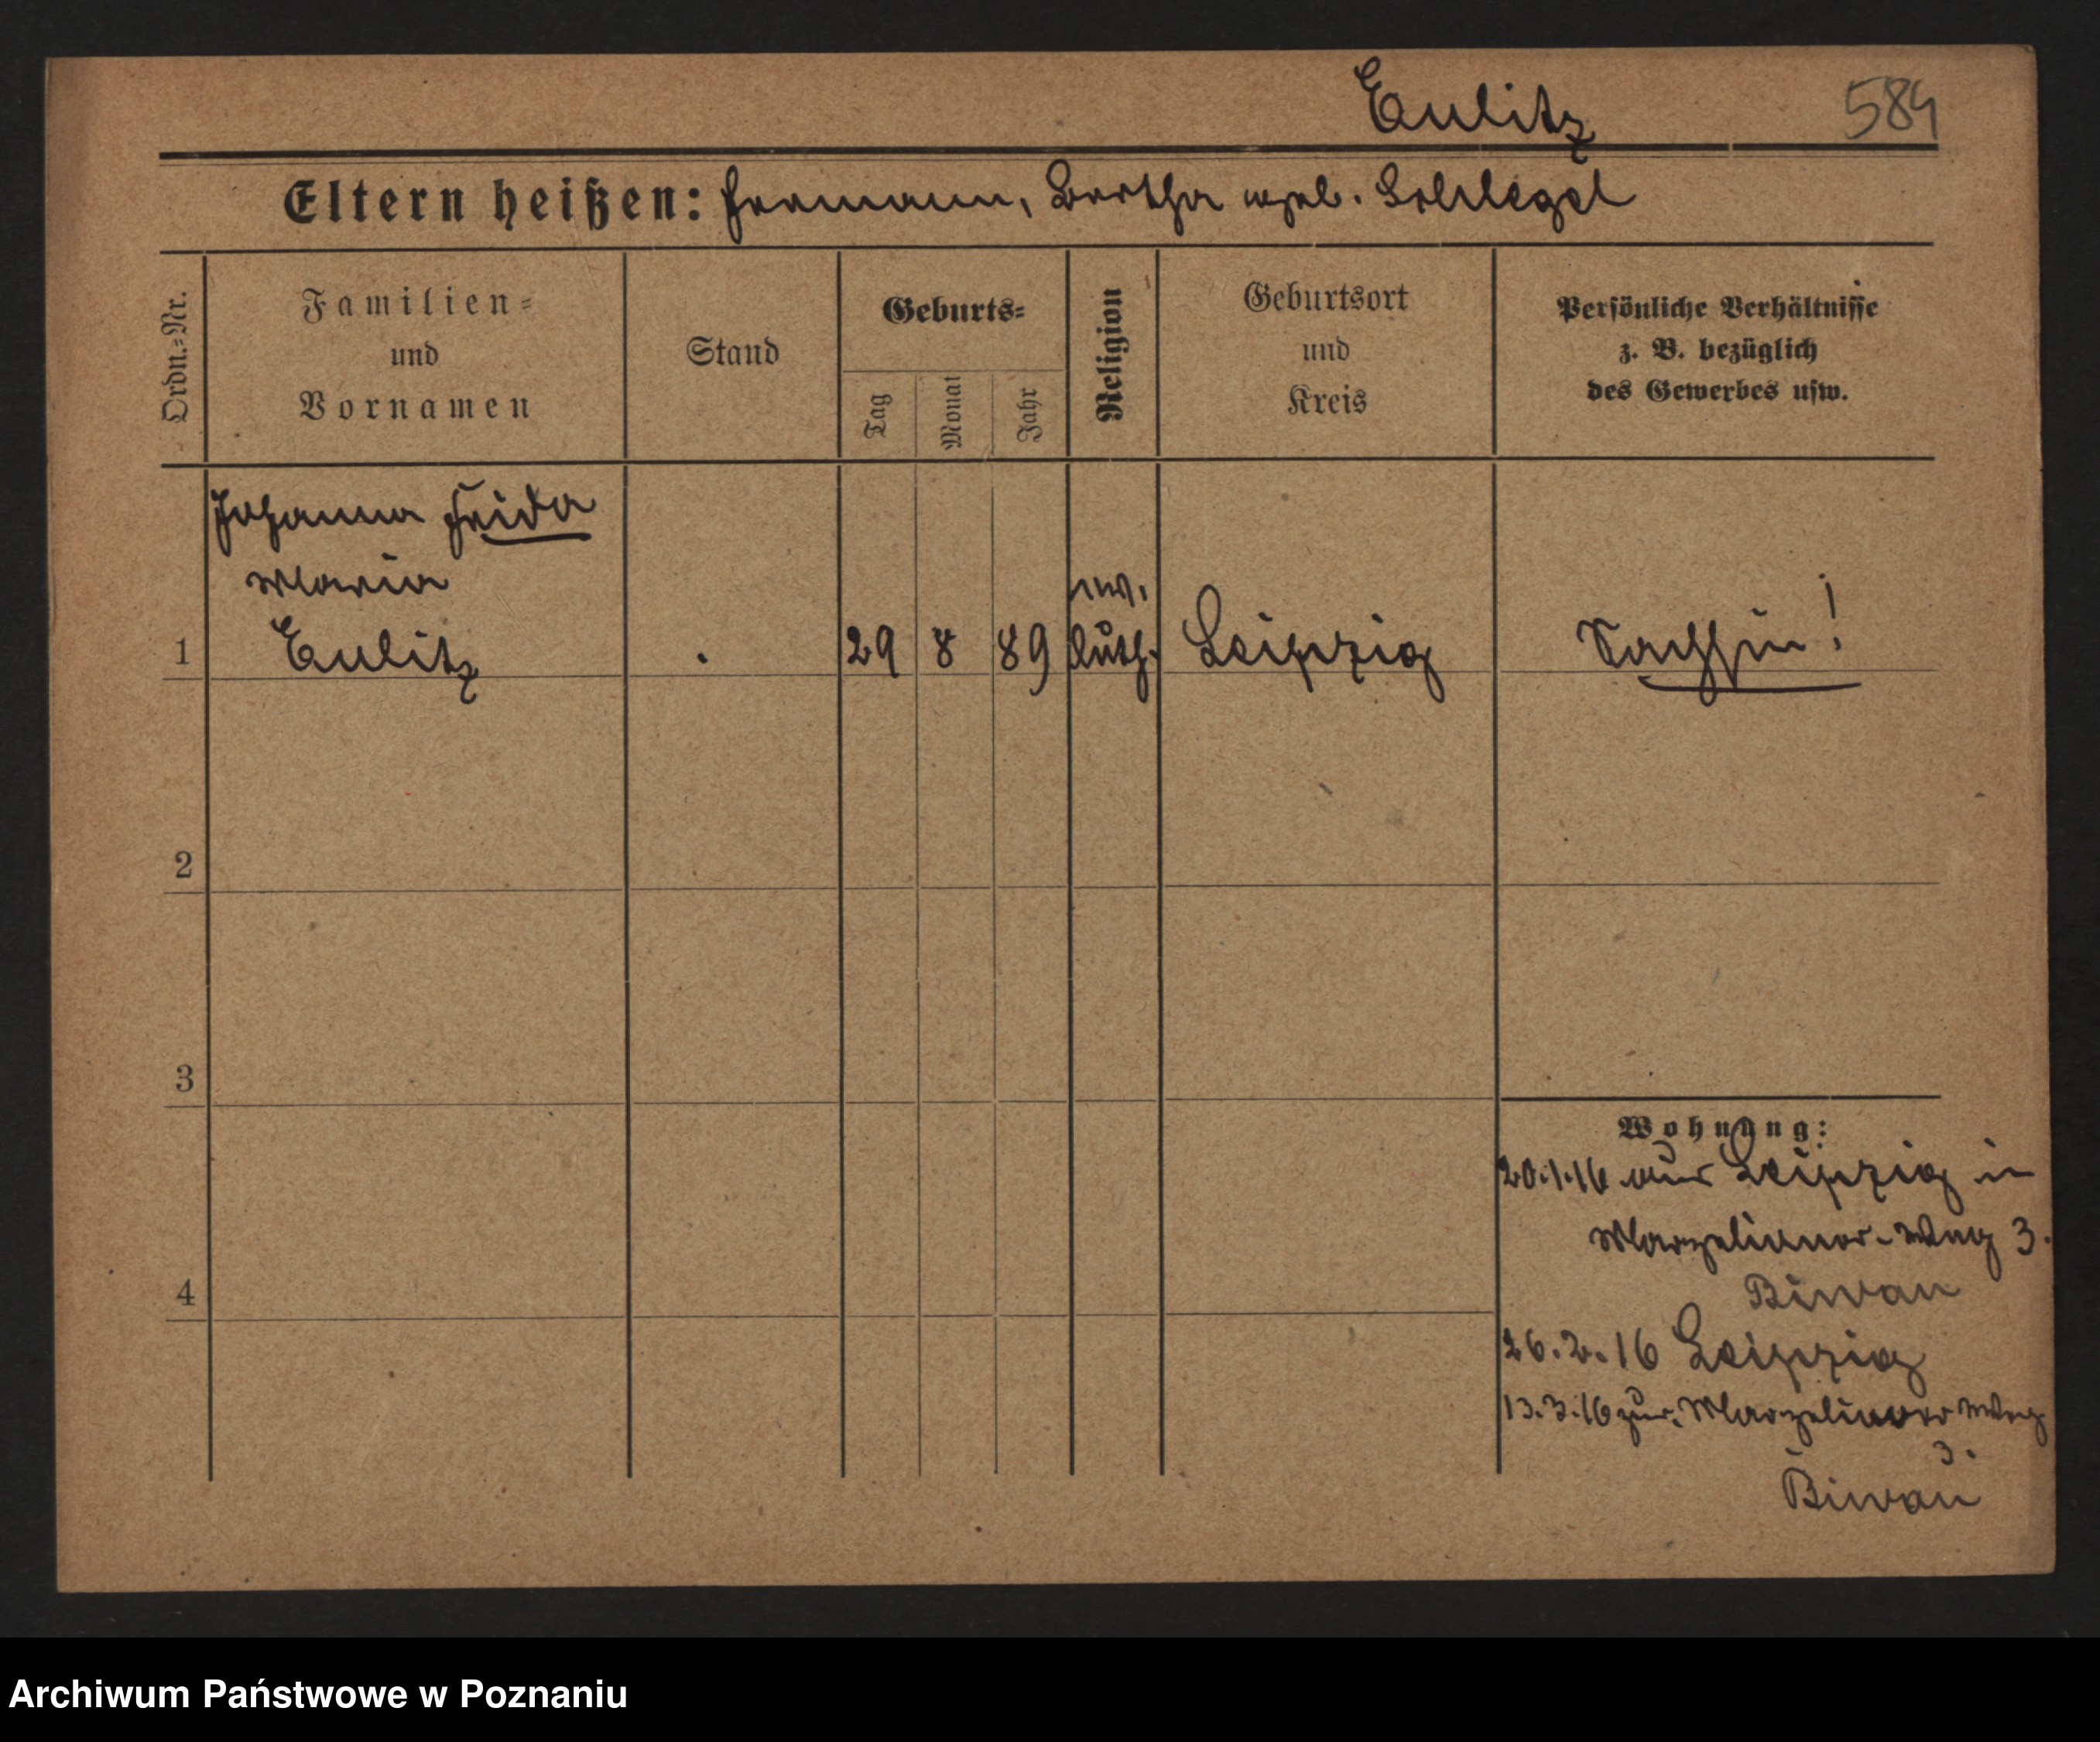 Eulitz 584
Eltern heißen: Hermann, Bertha geb. Schlegel
Ordn.-Nr.
Familien-
und
Vornamen
Stand
Geburts-
Tag
Monat
Jahr
Religion
Geburtsort
und
Kreis
Persönliche Verhältnisse
z. B. bezüglich
des Gewerbes usw.
Johanna Frida
Maria
1 Eulitz . 29 8 89 ev. luth. Leipzig Sachsin!
2
3
4
Wohnung:
20.1.16 aus Leipzig in
Marzeliner-Weg 3.
26.2.16 Leipzig
13.3.16 zur. Marzeliner Weg
3.
Archiwum Państwowe w Poznaniu